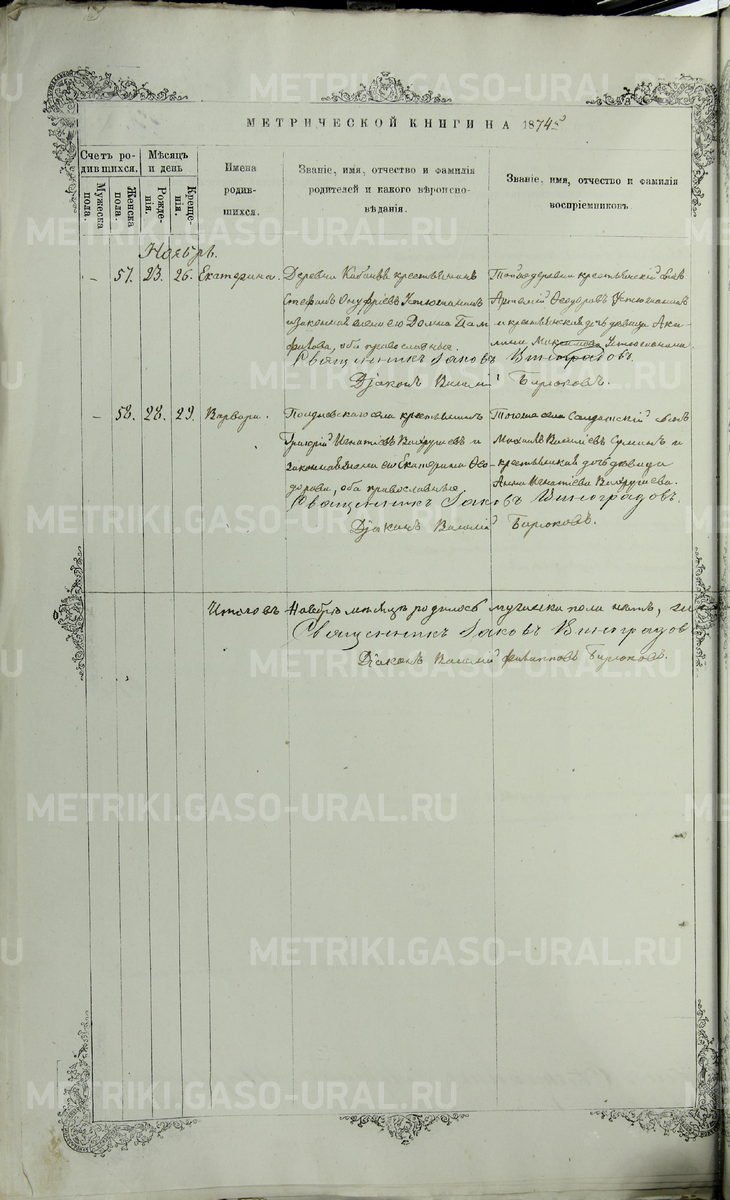 МЕТРИЧЕСКОЙ КНИГИ НА 1874й
Счетъ ро-
дившихся.
Мужеска
пола.
Женска
пола.
Мѣсяцъ
и день
Рожде-
нія.
Креще-
нія.
Имена
родив-
шихся.
Званіе, имя, отчество и фамилія
родителей и какого вѣроиспо-
вѣданія.
Званіе, имя, отчество и фамилія
воспріемниковъ.
Ноябрь.
– 57. 23. 26. Екатерина.
Деревни крестьянинъ
Стефанъ Онуфріевъ Устюжанинъ
и законная жена его Домна Пам-
филова, оба православные.
Тойже деревни крестьянскій сынъ
Артемій Ѳеодоровъ Устюжанинъ
и крестьянская дочь дѣвица Аки-
лина Максимова Устюжанина.
Священникъ Іаковъ Виноградовъ.
Діаконъ Василій Бирюковъ.
– 58. 28. 29. Варвара.
села крестьянинъ
Григорій Игнатіевъ Вахрушевъ и
законная жена его Екатерина Ѳео-
дорова, оба православные
Тогоже села Солдатскій сынъ
Михаилъ Василіевъ и
крестьянская дочь дѣвица
Анна Игнатіева Вахрушева.
Священникъ Іаковъ Виноградовъ.
Діаконъ Василій Бирюковъ.
Итого въ Ноябрѣ мѣсяцѣ родилось мужеска пола нѣтъ,
Священникъ Іаковъ Виноградов
Діаконъ Василій Бирюковъ.
METRIKI.GASO-URAL.RU